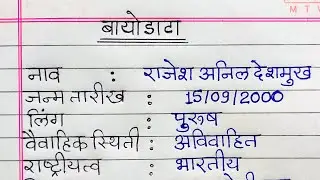 बायोडाटा
नाव : राजेश अनिल देशमुख
जन्म तारीख : 15/09/2000
लिंग : पुरूष
वैवाहिक स्थिती : अविवाहित
राष्ट्रीयत्व : भारतीय